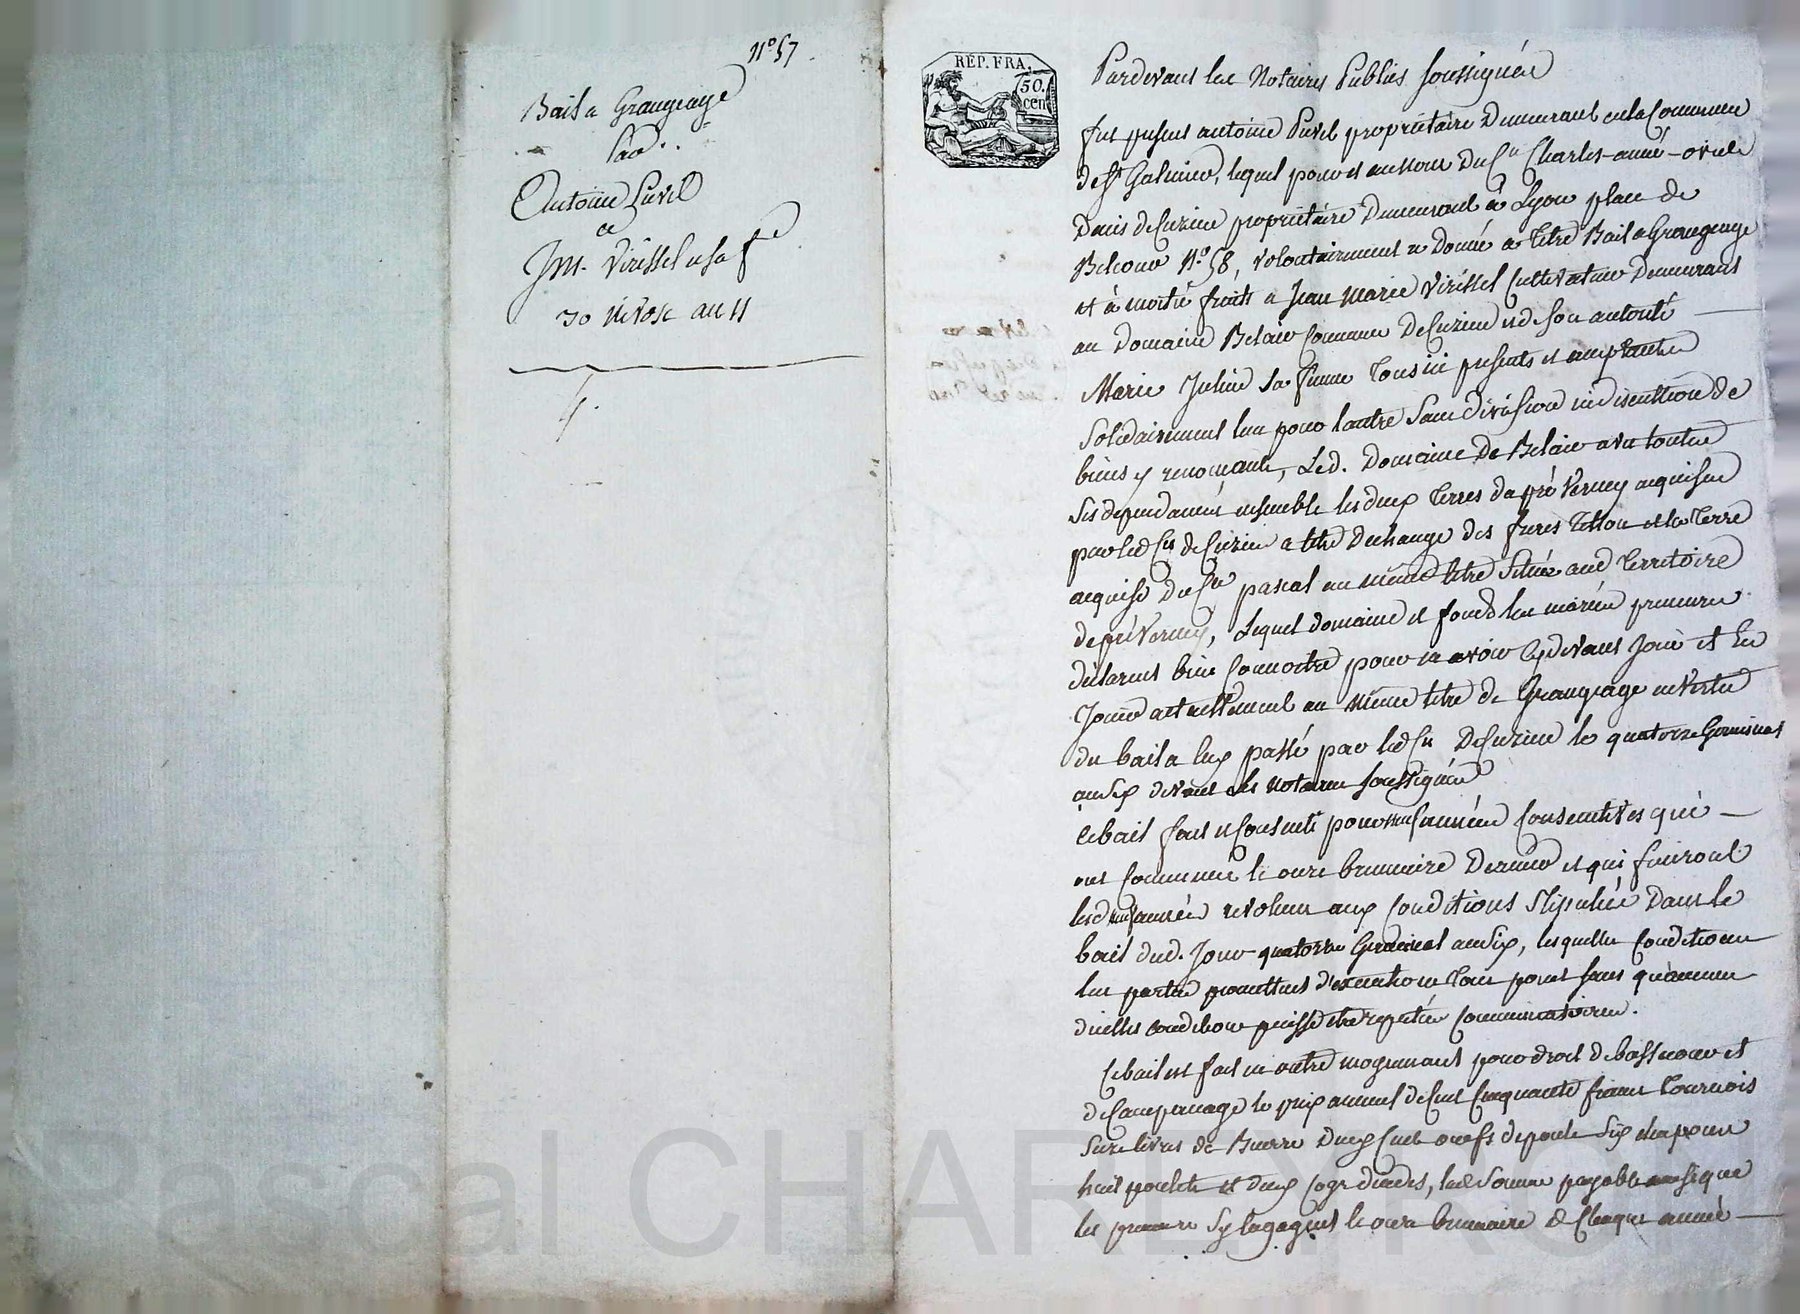 N° 57
Bail a Grangeage
Par
Antoine Puvil
a
J.M. Virissel et sa fe
30 Nivose an 11
REP. FRA.
50. cen
Pardevant les Notaires Publics soussignés
fut present antoine Puvil proprietaire Demeurant en la Commune
de St Galmier, lequel pour et au nom du Cn Charles-anné-
Denis de Cuzieu proprietaire Demeurant à Lyon place de
Belcour N° 58, volontairement a Donné a titre Bail a Grangeage
et à moitié fruits a Jean Marie Virissel Cultivateur Demeurant
au Domaine Belair Commune De Cuzieu et de son autorité
Marie Julien sa femme Tous ici presents et acceptants
Solidairement l'un pour l'autre sans division ni discussion de
biens y renonçants, Led. Domaine de Belair avec toutes
ses dependances, ensemble les deux Terres du pré Verney acquises
par led Cn de Cuzieu a titre Dechange des freres Tisson et la Terre
acquise du Cn pascal au meme titre située aud Territoire
de pré Verney, Lequel domaine et fonds les mariés preneurs
declarent bien Connoitre pour en avoir cydevant Joui et En
Jouir actuellement au même titre de Grangeage en vertu
du bail a eux passé par led Cn De Cuzieu le quatorze Germinal
an six devant les notaires soussignés
Ce bail fait et Consenti pour années Consecutives qui
ont Commencé le onze brumaire Dernier et qui finiront
lesd années revolues aux Conditions Stipulées Dans le
bail dud. Jour quatorze Germinal an six, lesquelles Conditions
les parties promettent d'executer en Tous points sans qu'aucune
d'icelles conditions puisse etre reputée Comminatoire.
Ce bail est fait en outre moyennant pour droit de basse cour et
de Campanage le prix annuel de Cent Cinquante francs Tournois
livres de Beurre Deux Cent oeufs de poule Six chapons
huit poulets et deux Coqs dindes, lad Somme payable ainsi que
les preneurs s'y engagent le onze brumaire de Chaque année
Pascal CHARLYRON